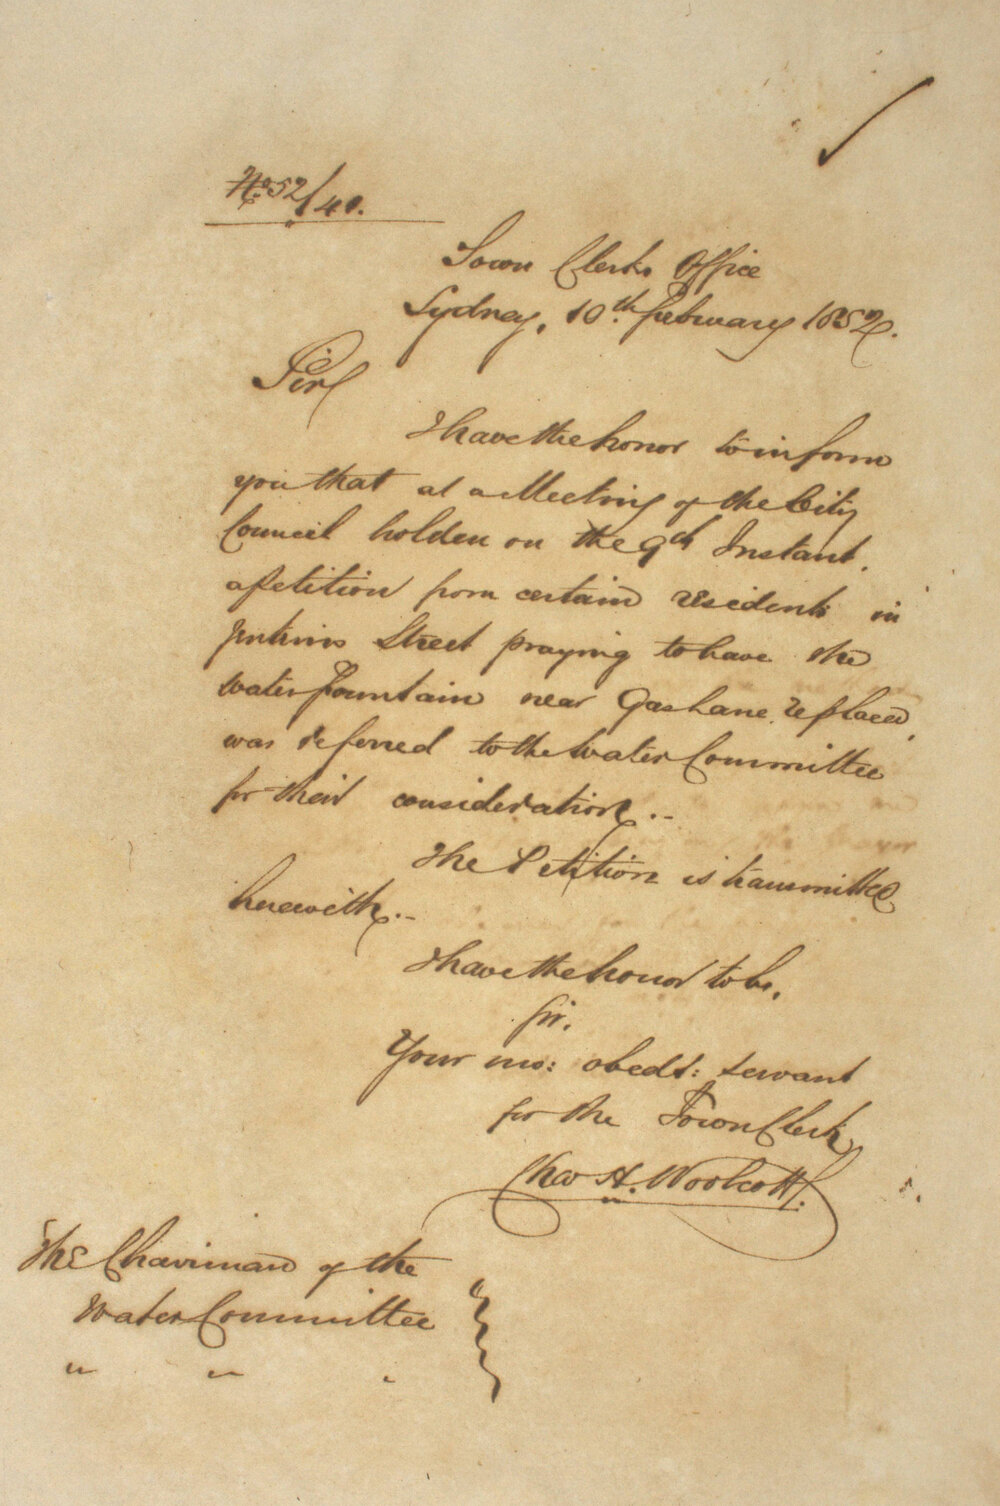 No. 52/40.
Town Clerks Office
Sydney, 10th February 1852.
Sir
I have the honor to inform
you that at a Meeting of the City
Council holden on the 9th Instant.
a Petition from certain residents in
Jenkins Street praying to have the
water fountain near Gas Lane replaced,
was referred to the Water Committee
for their consideration..
The Petition is transmitted
herewith..
I have the honor to be,
Sir,
Your mo: obedt: servant
for the Town Clerk
Chas H. Woolcott.
The Chairman of the
Water Committee
" " "